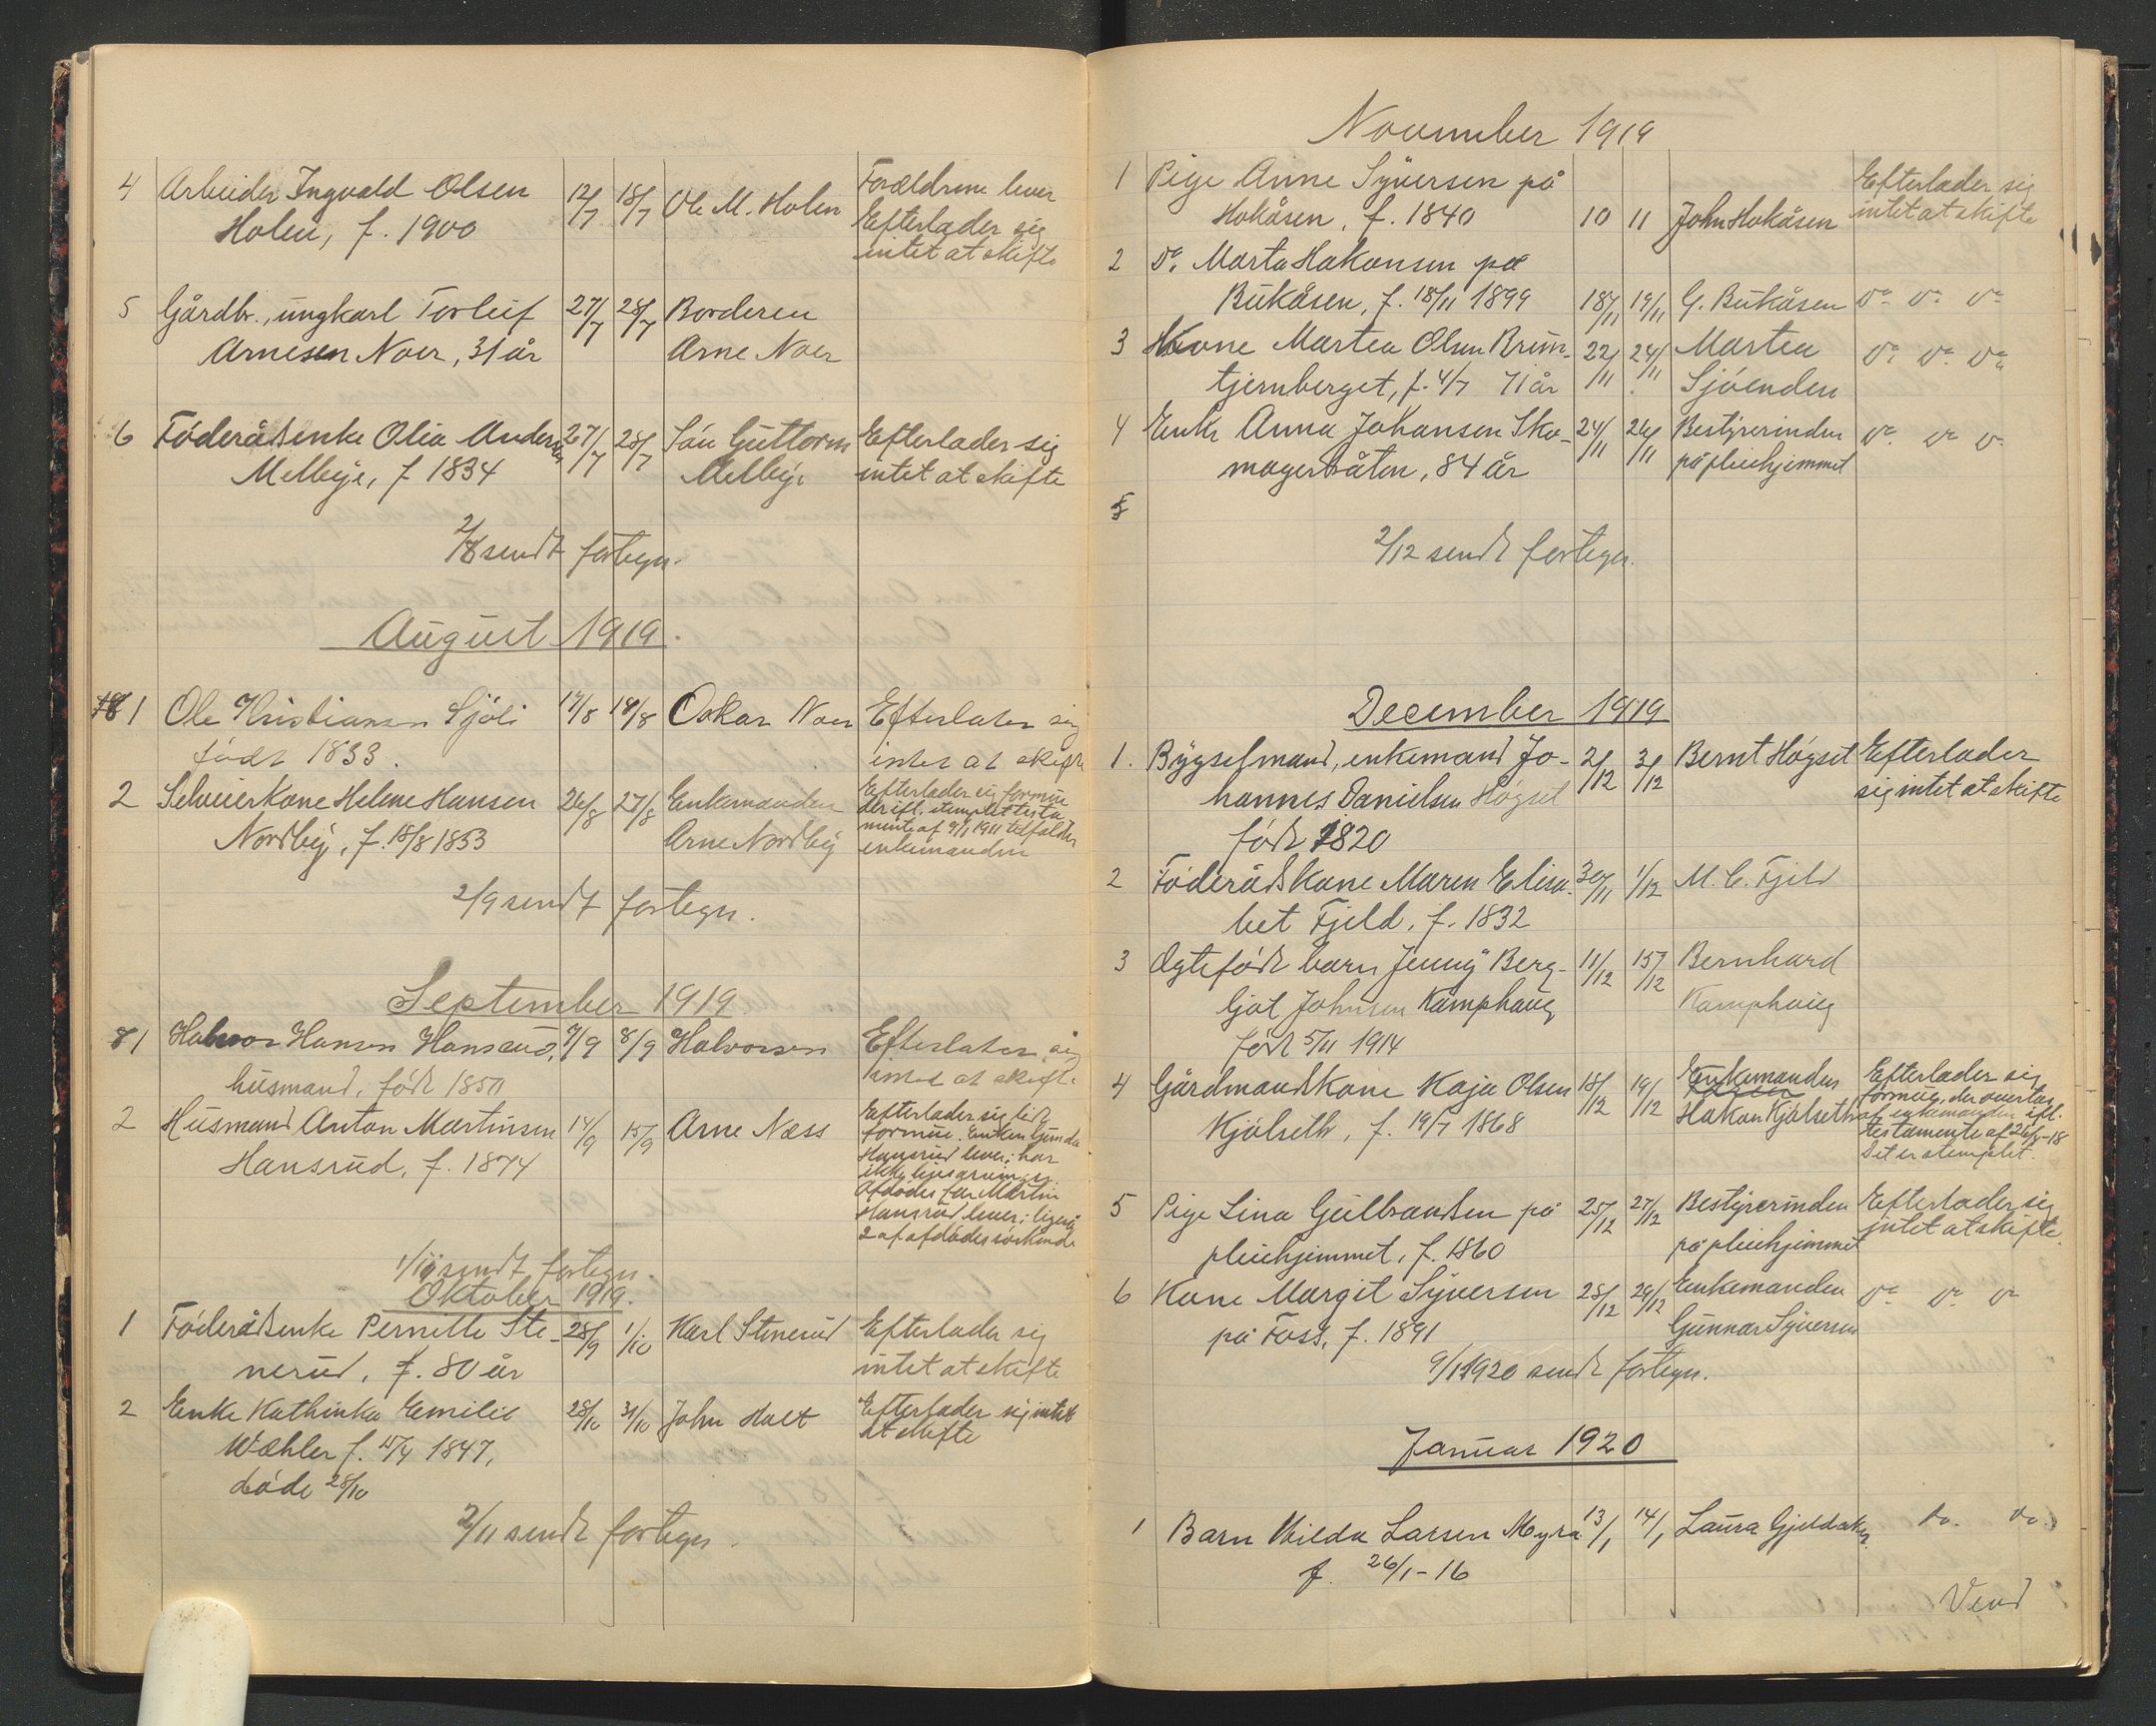 4 Arbeider Ingvald Olsen 12/7 18/7 Ole M. Holen Forældrene lever
Holen, f. 1900 Efterlader sig
intet at skifte
5 Gårdbr., ungkarl Torleif 27/7 28/7 Broderen
Arnesen Noer, 31 år Arne Noer
6 Föderådsenke Olia Anders 27/7 28/7 Sön Guttorm Efterlader sig
Melbye, f 1834 Melbye intet at skifte
2/8 sendt fortegn.
August 1919.
1 Ole Kristiansen Sjöli 17/8 18/8 Oskar Noer Efterlater sig
født 1833. intet at skifte
2 Selveierkone Helene Hansen 26/8 27/8 Enkemanden Efterlader sig formue
Nordby, f. 18/8 1853 Arne Nordby skriftl. stemplet testa
mente af 9/1 1911 tilfalder
enkemanden
2/9 sendt fortegn.
September 1919
1 Halvor Hansen Hansrud, 7/9 8/9 Halvorsen Efterlater sig
husmand, födt 1850 intet at skifte
2 Husmand Anton Martinsen 14/9 15/9 Arne Næss Efterlader sig lidt
Hansrud, f. 1874 formue. Enken
Hansrud lever; har
ikke livsarvinger.
Afdödes far Martin
Hansrud lever; ligeså
2 af afdödes söskende
1/10 sendt fortegn.
Oktober 1919.
1 Föderådsenke Pernille Ste- 28/9 1/10 Karl Stenerud Efterlader sig
nerud, f. 80 år intet at skifte
2 Enke Kathinka Emilie 28/10 31/10 John Holt Efterlader sig intet
Wæhler f. 15/4 1847, at skifte
döde 28/10
2/11 sendt fortegn.
November 1919
1 Pige Anne Syversen på Efterlader sig
Hokåsen, f. 1840 10 11 John Hokåsen intet at skifte
2 Do. Marta Hakonsen på
Bukåsen, f. 18/11 1899 18/11 19/11 G. Bukåsen Do. Do. Do.
3 Kone Martea Olsen Brun- 22/11 24/11 Martea Do. Do. Do.
tjernberget, f. 4/7 71 år Sjöenden
4 Enke Anna Johansen Sko- 24/11 26/11 Bestyrerinden Do. Do. Do.
magerbråten, 84 år på pleiehjemmet
5
2/12 sendt fortegn.
December 1919
1. Bygselmand, enkemand Jo- 2/12 3/12 Bernt Högset Efterlader
hannes Danielsen Högset sig intet at skifte
födt 1820
2 Föderådskone Maren Elisa- 30/11 1/12 M. C. Fjeld
bet Fjeld, f. 1832
3 Ægtefödt barn Jenny Berg- 11/12 15/12 Bernhard
ljot Johnsen Kamphaug Kamphaug
födt 5/11 1914
4 Gårdmandskone Kaja Olsen 18/12 19/12 Enkemanden Efterlader sig
Kjölseth, f. 19/7 1868 Hakon Kjölseth formue, der overtas
af enkemanden ifl.
testamente af 26/4-18
Det er stemplet.
5 Pige Lina Gulbrandsen på 25/12 27/12 Bestyrerinden Efterlader sig
pleiehjemmet, f. 1860 på pleiehjemmet intet at skifte.
6 Kone Margit Syversen 28/12 29/12 Enkemanden Do. Do. Do.
på Foss, f. 1891 Gunnar Syversen
9/1 1920 sendt fortegn.
Januar 1920
1 Barn Hilda Larsen Myra 13/1 14/1 Laura Gjeldaker do. do.
f. 26/1-16
Vend